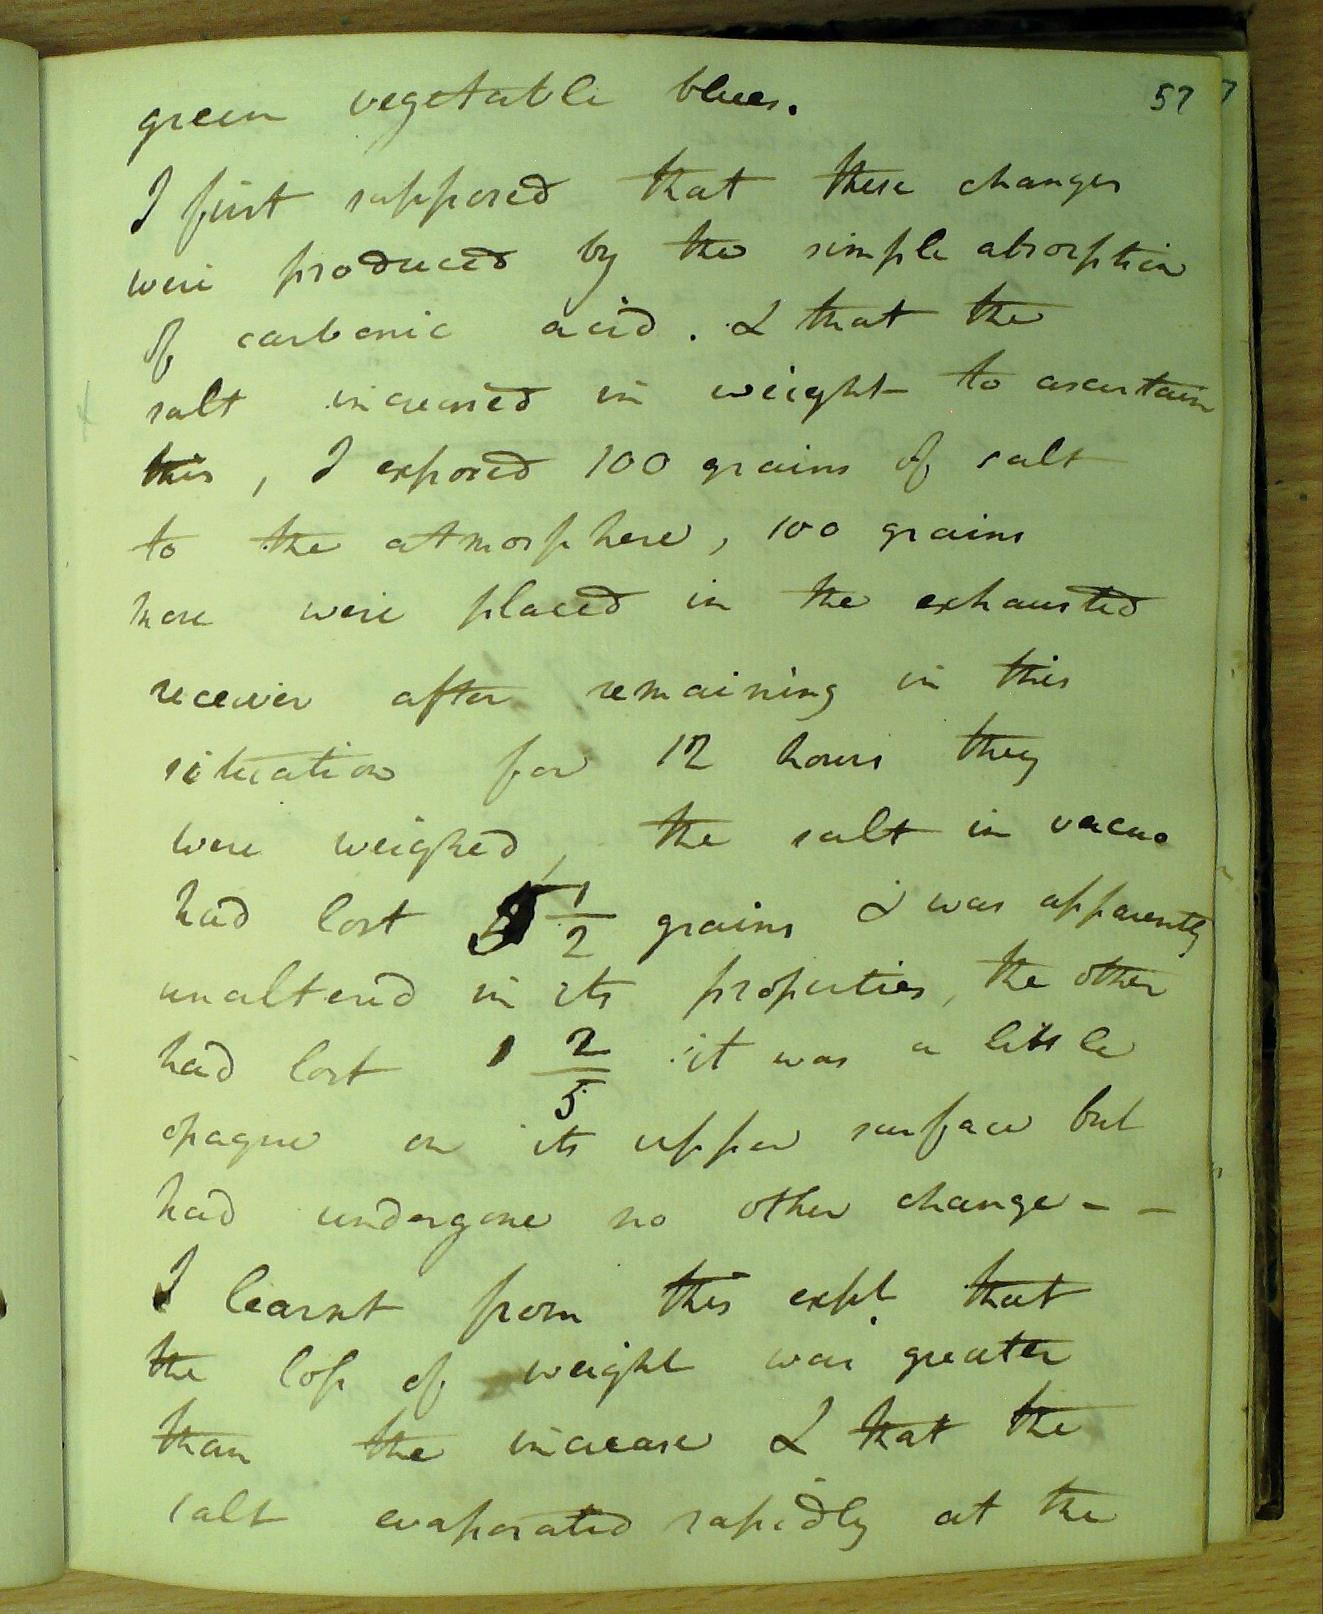 57
green vegetable blues.
I first supposed that these changes
were produced by the simple absorption
of carbonic acid. & that the
salt increased in weight to ascertain
this, I exposed 100 grains of salt
to the atmosphere, 100 grains
more were placed in the exhausted
receiver after remaining in this
situation for 12 hours they
were weighed, the salt in vacuo
had lost 1/2 grains & was apparently
unaltered in its properties, the other
had lost 1 2/5 it was a little
opaque on its upper surface but
had undergone no other change - -
I learnt from this expt. that
the loss of weight was greater
than the increase & that the
salt evaporated rapidly at the